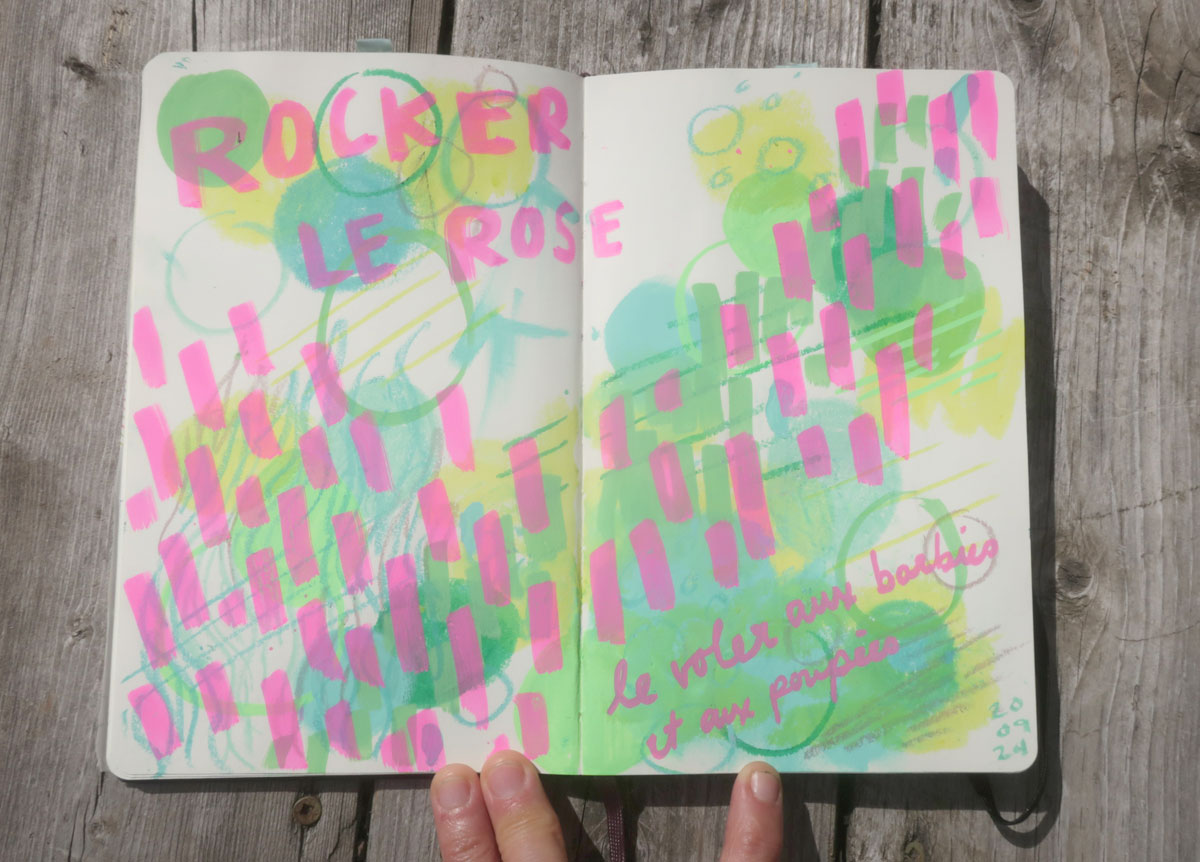 ROCKER
LE ROSE
le voler aux barbies
et aux poupées
20
09
24